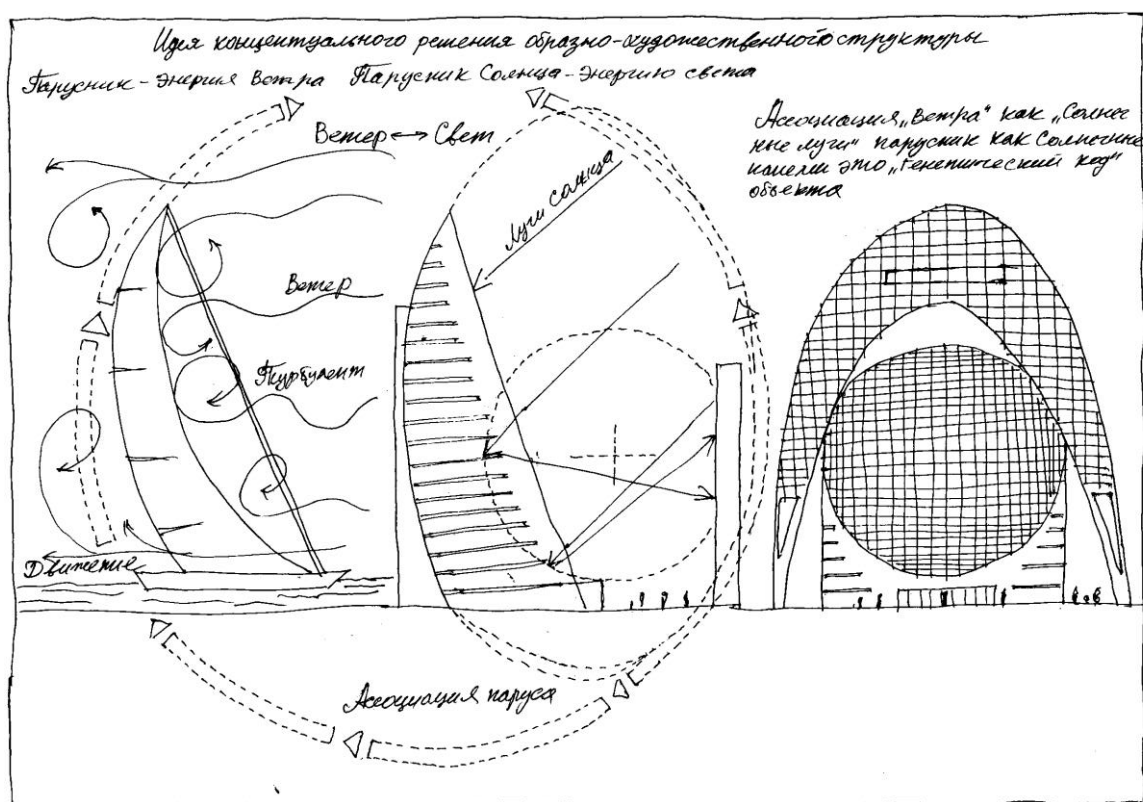 Идея концептуального решения образно-художественного структуры
Парусник - Энергия Ветра Парусник Солнца - Энергию света
Ветер ↔ Свет
Ассоциация „Ветра" как „Солнеч
ные лучи" парусник как Солнечные
панели это „Генетический код"
объекта
Лучи Солнца
Ветер
Турбулент
Движение
Ассоциация паруса